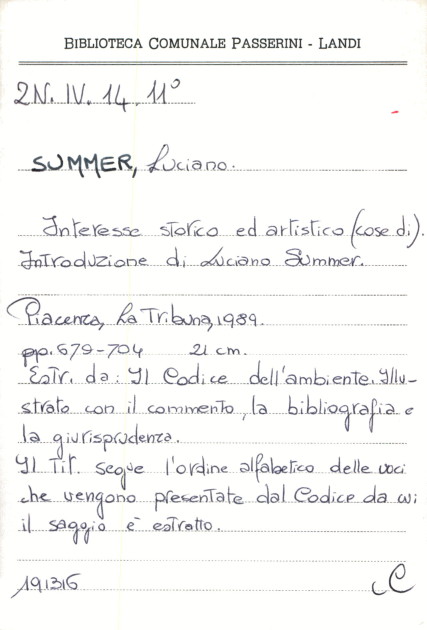 BIBLIOTECA COMUNALE PASSERINI - LANDI
2N. IV. 14. 11°
SUMMER, Luciano.
Interesse storico ed artistico (cose di).
Introduzione di Luciano Summer.
Piacenza, La Tribuna, 1989.
pp. 679-704 21 cm.
Estr. da: Il Codice dell'ambiente. Illu-
strato con il commento, la bibliografia e
la giurisprudenza.
Il Tit. segue l'ordine alfabetico delle voci
che vengono presentate dal Codice da cui
il saggio è estratto.
191316
C